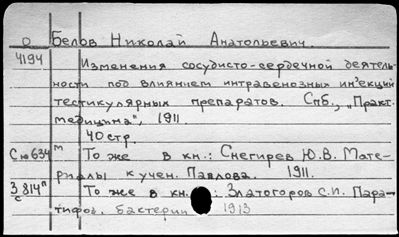 О Белов Николай Анатольевич.
4194 Изменения сосудисто-сердечной деятель-
ности под влиянием интравенозных ин'екций
тестикулярных препаратов. Спб., "Практ.
медицина", 1911.
40 стр.
Сю634 м То же в кн.: Снегирев Ю.В. Мате-
риалы к учен. Павлова. 1911.
З 814 п То же в кн.: Златогоров С.И. Пара-
с тифоз. бактерии 1913